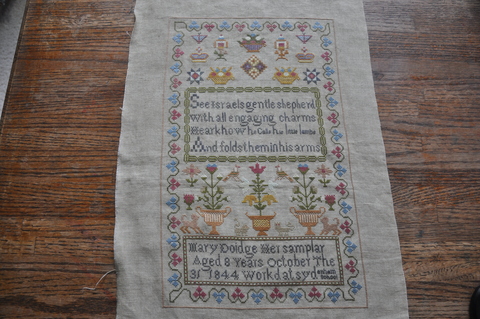 See Israels gentle shepherd
with all engaging charms
Hearkhow he Calls his
And folds them in his arms
Mary Doidge Her samplar
Aged 8 Years October The
31 1844 Workd at syd